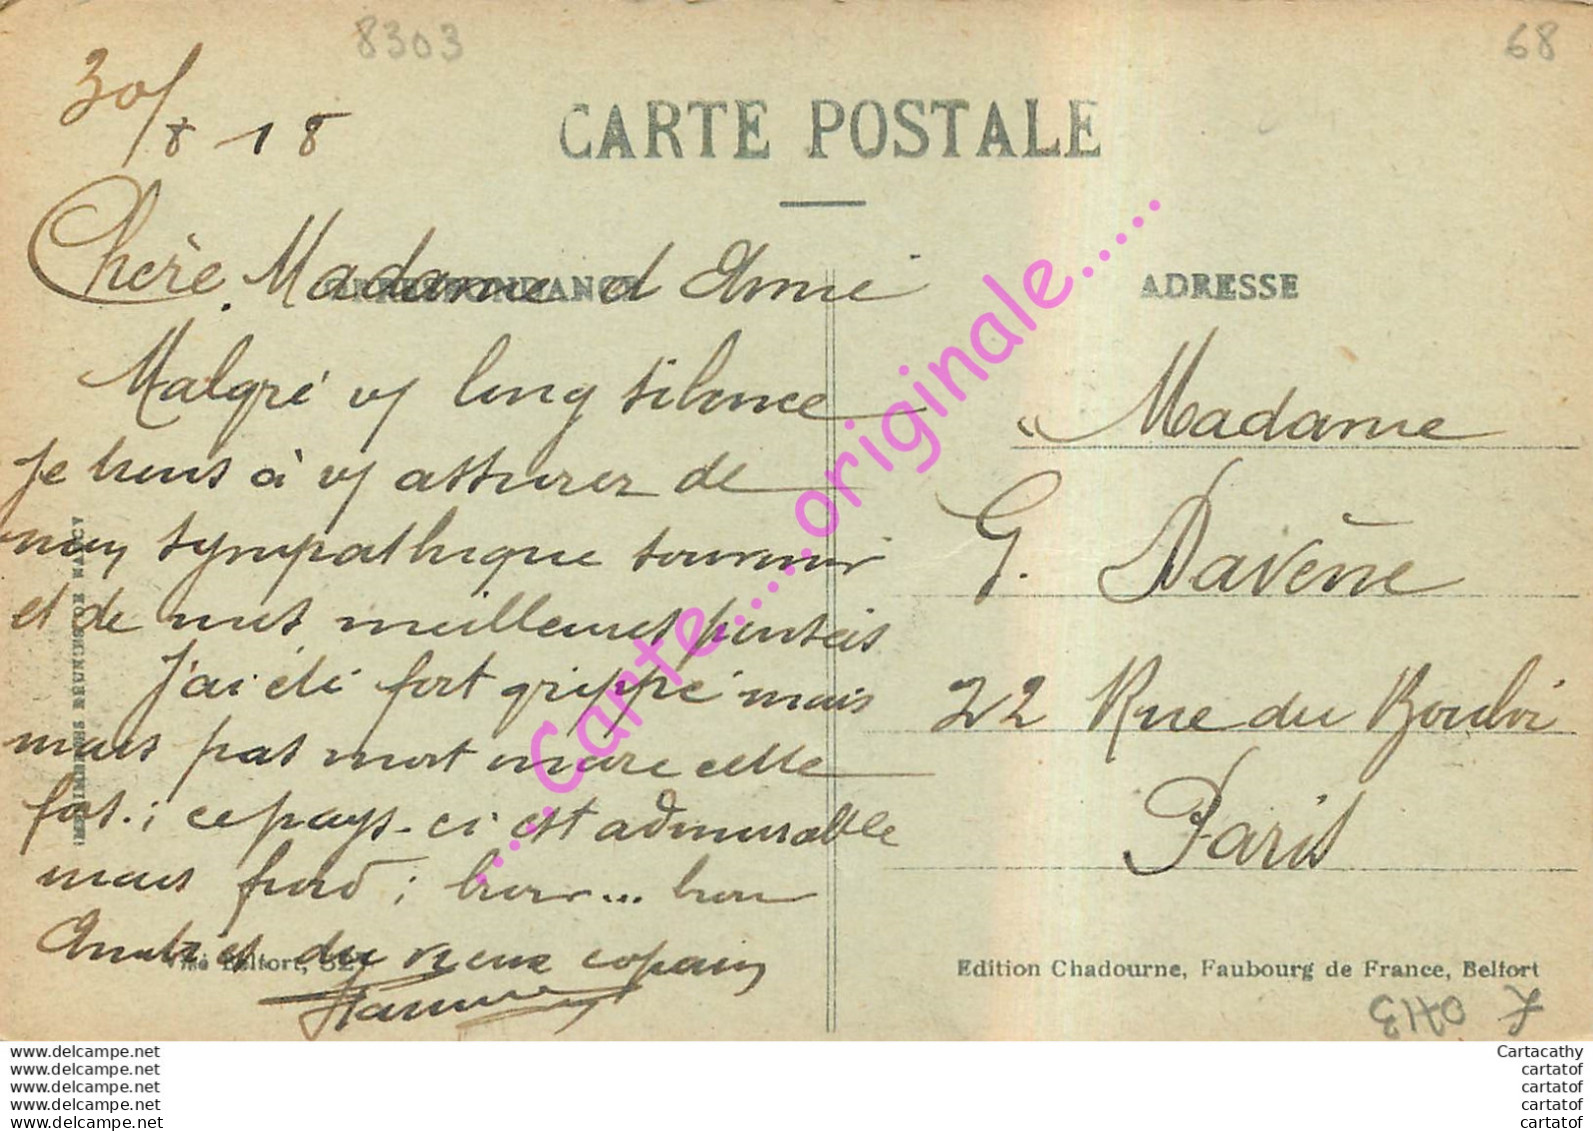 8303
68
30/8 18
CARTE POSTALE
CORRESPONDANCE
ADRESSE
Chère Madame d Amie
Malgré vs long silence
Je tiens à vs assurer de
mon sympathique souvenir
et de mes meilleures pensées
J'ai été fort grippé mais
mais pas mort encore cette
fois ; ce pays-ci est admirable
mais froid ; brr... brr
Amitiés du vieux copain
Madame
G. Davène
22 Rue du Bouloi
Paris
IMPRIMERIES REUNIES DE NANCY
Visé Belfort,
Edition Chadourne, Faubourg de France, Belfort
.....Carte.....originale.....
www.delcampe.net
www.delcampe.net
www.delcampe.net
www.delcampe.net
www.delcampe.net
Cartacathy
cartatof
cartatof
cartatof
cartatof